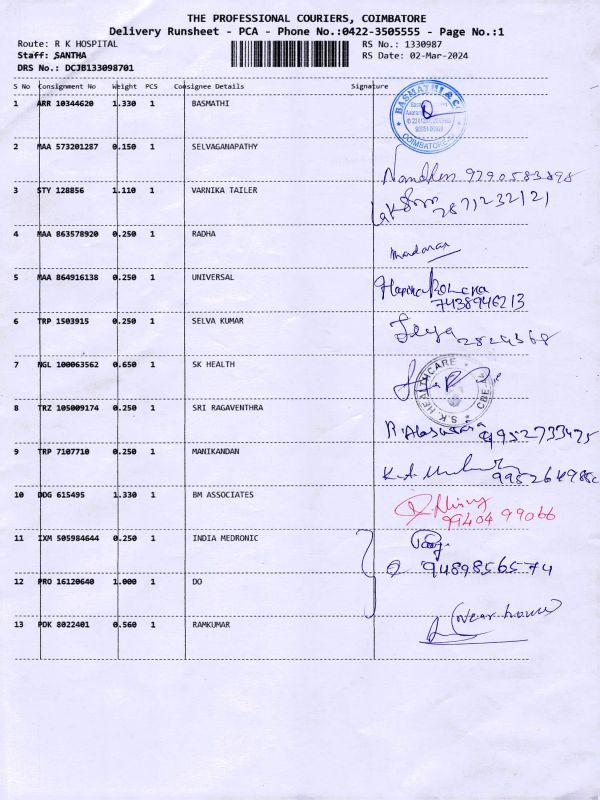 THE PROFESSIONAL COURIERS, COIMBATORE
Delivery Runsheet - PCA - Phone No.:0422-3505555 - Page No.:1
Route: R K HOSPITAL
RS No.: 1330987
Staff: SANTHA
RS Date: 02-Mar-2024
DRS No.: DCJB133098701
S No Consignment No Weight PCS Consignee Details Signature
1 ARR 10344620 1.330 1 BASMATHI
BASMATHI & Co
COIMBATORE
2 MAA 573201287 0.150 1 SELVAGANAPATHY
3 STY 128856 1.110 1 VARNIKA TAILER
4 MAA 863578920 0.250 1 RADHA
5 MAA 864916138 0.250 1 UNIVERSAL
7438946213
6 TRP 1503915 0.250 1 SELVA KUMAR
7 NGL 100063562 0.650 1 SK HEALTH
S.K HEALTHCARE
8 TRZ 105009174 0.250 1 SRI RAGAVENTHRA
9952733475
9 TRP 7107710 0.250 1 MANIKANDAN
10 DDG 615495 1.330 1 BM ASSOCIATES
99404 99066
11 IXM 505984644 0.250 1 INDIA MEDRONIC
9489856574
12 PRO 16120640 1.000 1 DO
13 PDK 8022401 0.560 1 RAMKUMAR
(Near house)